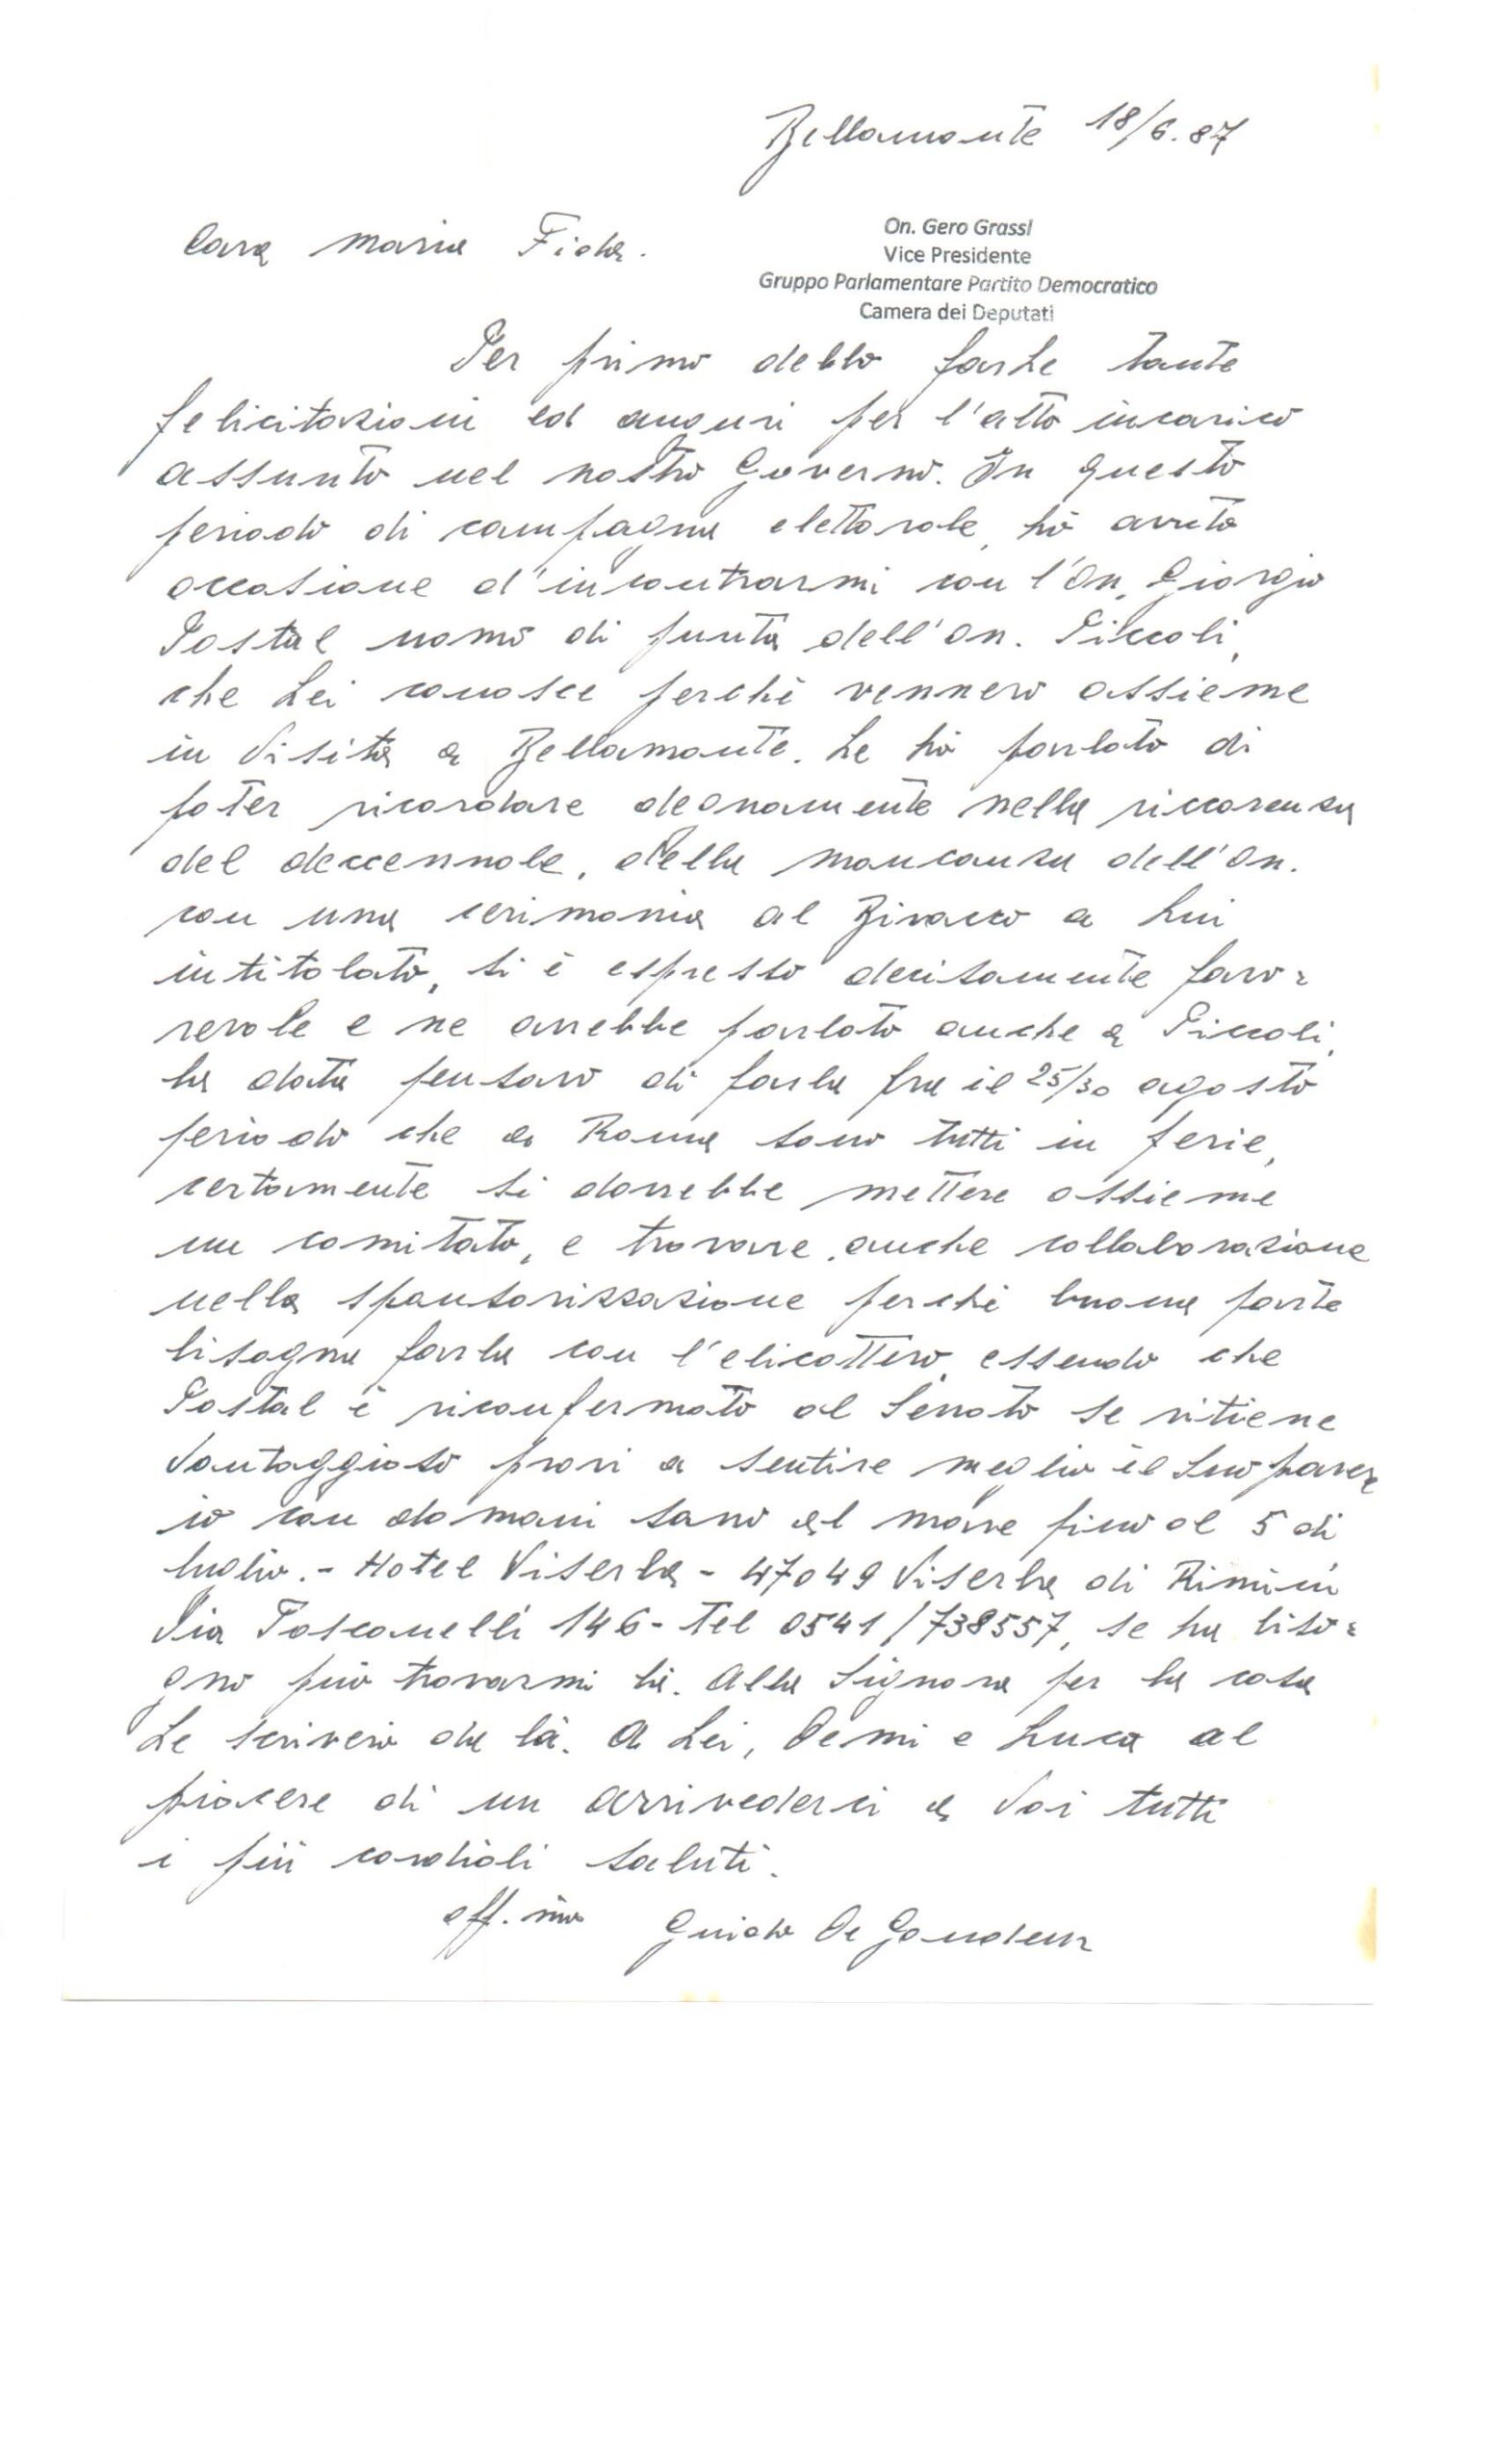 Bellamonte 18/6.87
Cara Maria Fida.
On. Gero Grassi
Vice Presidente
Gruppo Parlamentare Partito Democratico
Camera dei Deputati
Per primo debbo farLe tante
felicitazioni ed auguri per l'alto incarico
assunto nel nostro Governo. In questo
periodo di campagna elettorale, hò avuto
occasione d'incontrarmi con l'On. Giorgio
Postal uomo di punta dell'On. Piccoli,
che Lei conosce perchè vennero assieme
in visita a Bellamonte. Le hò parlato di
poter ricordare degnamente nella riccorenza
del deccennale, della mancanza dell'On.
con una cerimonia al Bivacco a Lui
intitolato, si è espresso decisamente favo=
revole e ne avrebbe parlato anche a Piccoli,
la data pensavo di farla fra il 25/30 agosto
periodo che a Roma sono tutti in ferie,
certamente si dovrebbe mettere assieme
un comitato, e trovare anche collaborazione
nella sponsorizzazione perchè buona parte
bisogna farla con l'elicottero, essendo che
Postal è riconfermato al Senato se ritiene
vantaggioso provi a sentire meglio il Suo parere
io con domani sono al mare fino al 5 di
luglio. - Hotel Viserba - 47049 Viserba di Rimini
Via Toscanelli 146 - Tel 0541/738557, se ha biso=
gno può trovarmi lì. Alla Signora per la casa
Le scriverò da là. A Lei, Demi e Luca al
piacere di un arrivederci a Voi tutti
i più cordiali saluti.
aff. mo Guido De Gaudenz